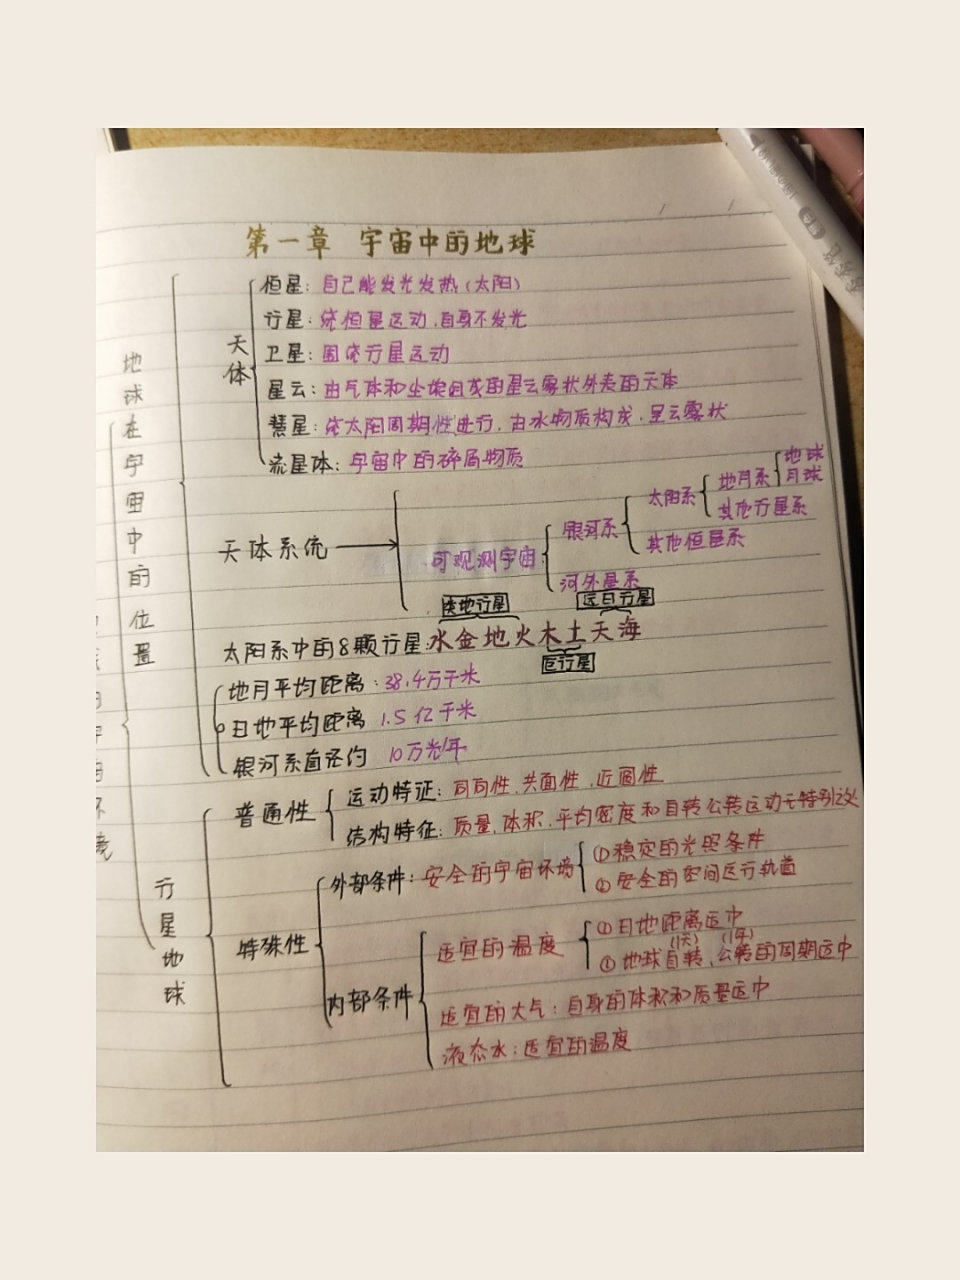 第一章 宇宙中的地球
地球在宇宙中的位置
天体
恒星：自己能发光发热（太阳）
行星：绕恒星运动，自身不发光
卫星：围绕行星运动
星云：由气体和尘埃组成的呈云雾状外表的天体
慧星：绕太阳周期性进行，由冰物质构成，呈云雾状
流星体：宇宙中的碎屑物质
天体系统
可观测宇宙
银河系
太阳系
地月系
地球
月球
其他行星系
其他恒星系
河外星系
类地行星
远日行星
太阳系中的8颗行星：水金地火木土天海
巨行星
地月平均距离：38.4万千米
日地平均距离 1.5亿千米
银河系直径约 10万光年
行星地球
普通性
运动特征：同向性、共面性、近圆性
结构特征：质量、体积、平均密度和自转公转运动无特别之处
特殊性
外部条件：安全的宇宙环境
①稳定的光照条件
②安全的空间运行轨道
内部条件
适宜的温度
①日地距离适中
(1天) (1年)
②地球自转、公转的周期适中
适宜的大气：自身的体积和质量适中
液态水：适宜的温度